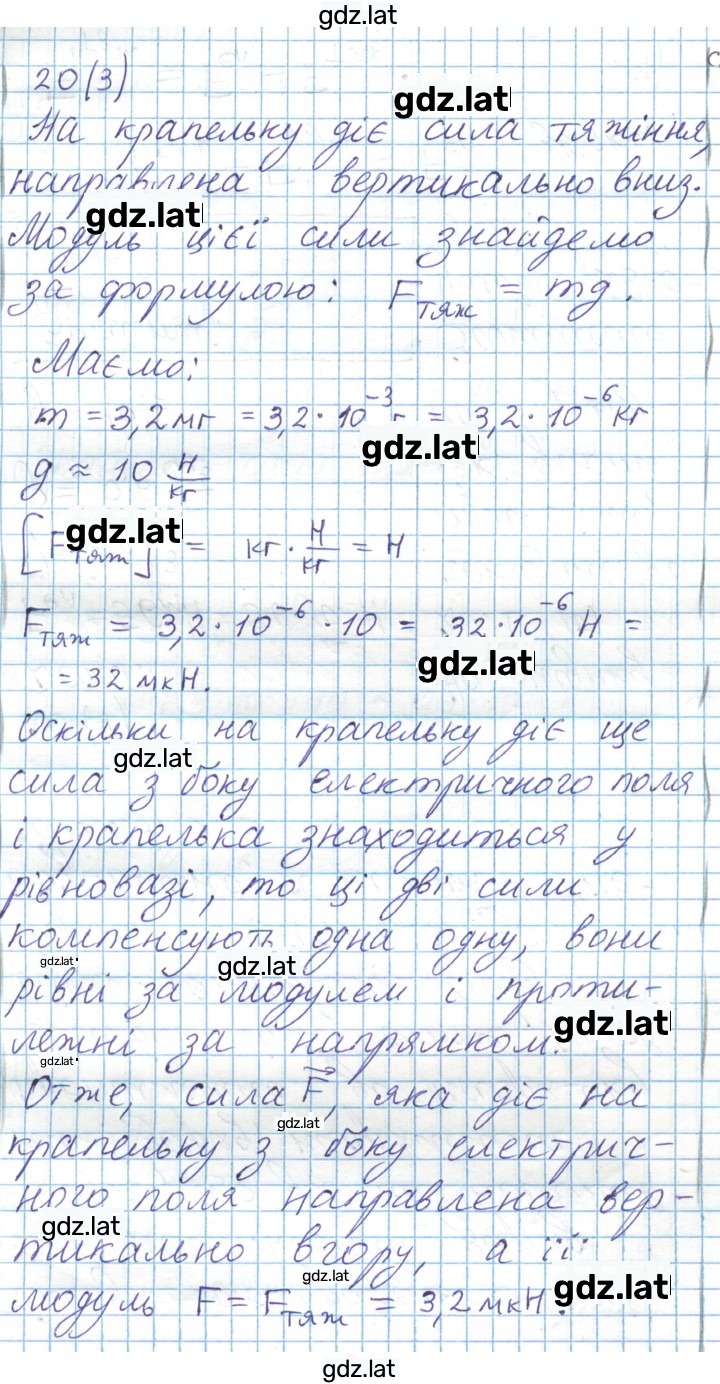 gdz.lat
20(3)
gdz.lat
На крапельку діє сила тяжіння,
направлена вертикально вниз.
gdz.lat
Модуль цієї сили знайдемо
за формулою: Fтяж = mg.
Маємо:
m = 3,2 мг = 3,2 · 10⁻³ г = 3,2 · 10⁻⁶ кг
gdz.lat
g ≈ 10 Н/кг
gdz.lat
[Fтяж] = кг · Н/кг = Н
Fтяж = 3,2 · 10⁻⁶ · 10 = 32 · 10⁻⁶ Н =
gdz.lat
= 32 мкН.
Оскільки на крапельку діє ще
gdz.lat
сила з боку електричного поля
і крапелька знаходиться у
рівновазі, то ці дві сили
компенсують одна одну, вони
gdz.lat gdz.lat
рівні за модулем і проти-
gdz.lat
лежні за напрямком.
gdz.lat
Отже, сила F⃗, яка діє на
gdz.lat
крапельку з боку електрич-
ного поля направлена вер-
gdz.lat
тикально вгору, а її
gdz.lat gdz.lat
модуль F = Fтяж = 3,2 мкН.
gdz.lat